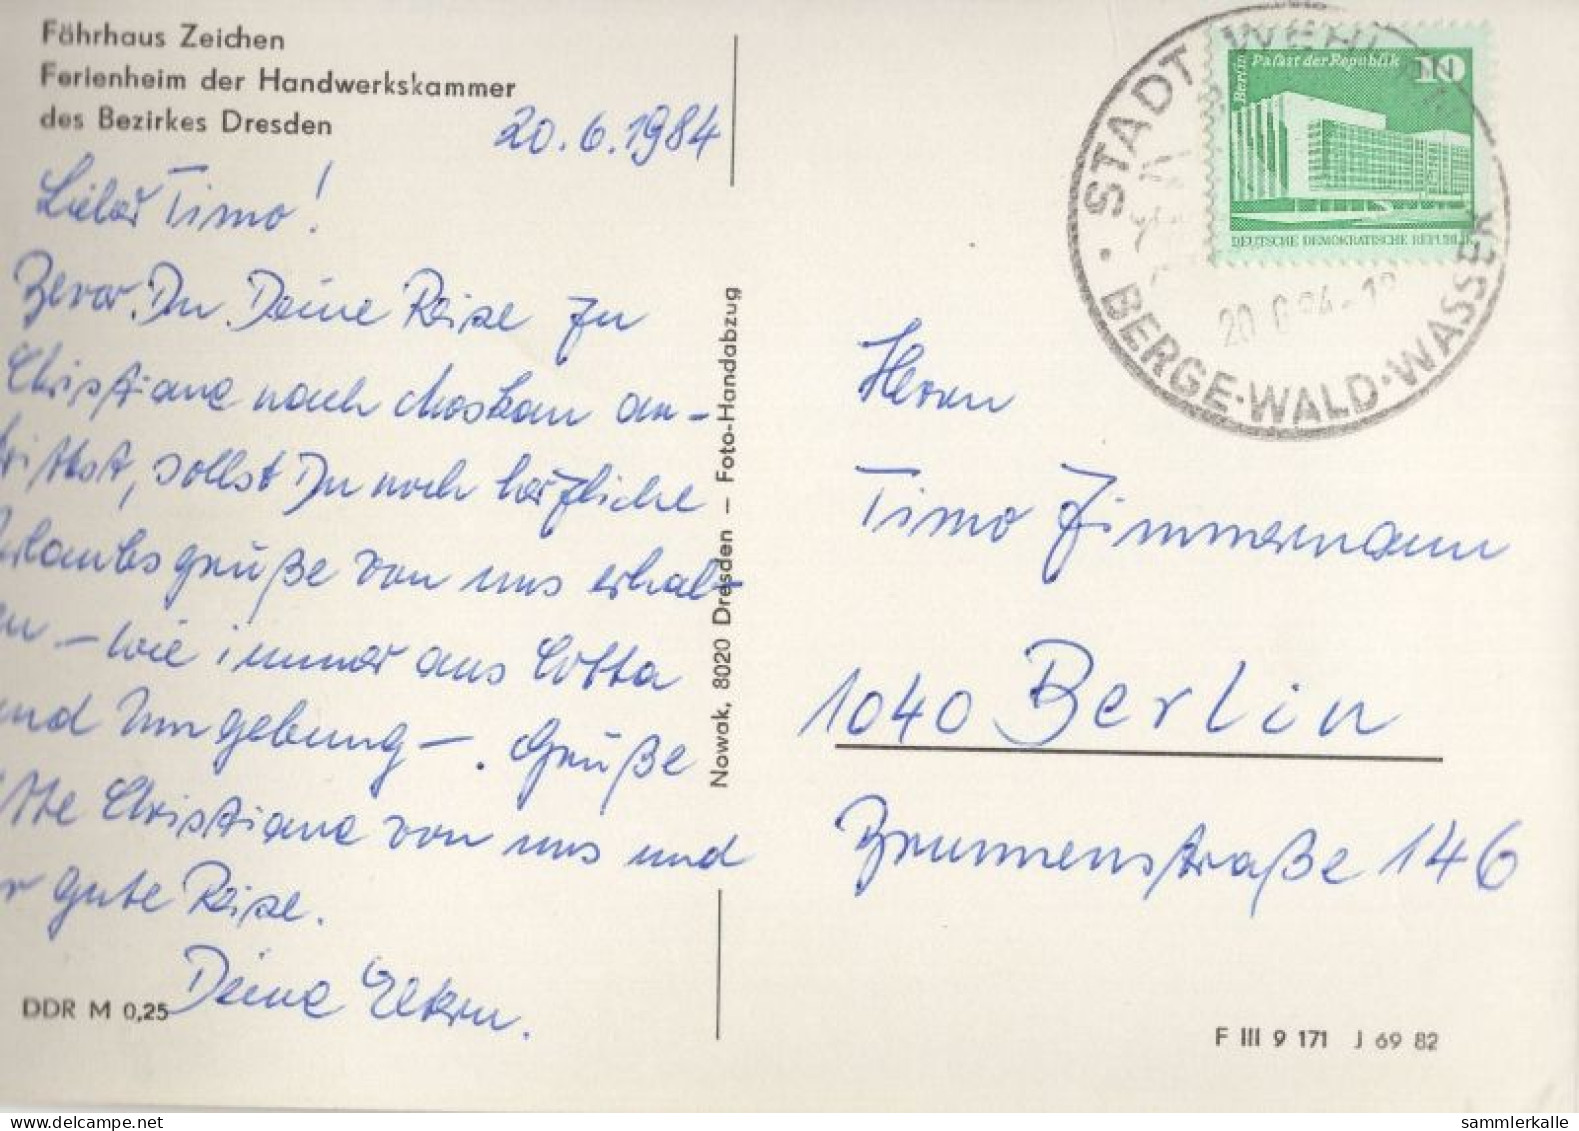 Fährhaus Zeichen
Ferienheim der Handwerkskammer
des Bezirkes Dresden
20.6.1984
Lieber Timo!
Bevor Du Deine Reise zu
Christiane nach Moskau an-
trittst, sollst Du noch herzliche
Urlaubsgrüße von uns erhalt-
en – wie immer aus Cotta
und Umgebung –. Grüße
bitte Christiane von uns und
gute Reise.
Deine Eltern.
DDR M 0,25
Nowak, 8020 Dresden – Foto-Handabzug
Berlin Palast der Republik 10
DEUTSCHE DEMOKRATISCHE REPUBLIK
STADT WEHLEN
20.6.84-18
BERGE·WALD·WASSER
Herrn
Timo Zimmermann
1040 Berlin
Brunnenstraße 146
F III 9 171 J 69 82
www.delcampe.net
sammlerkalle